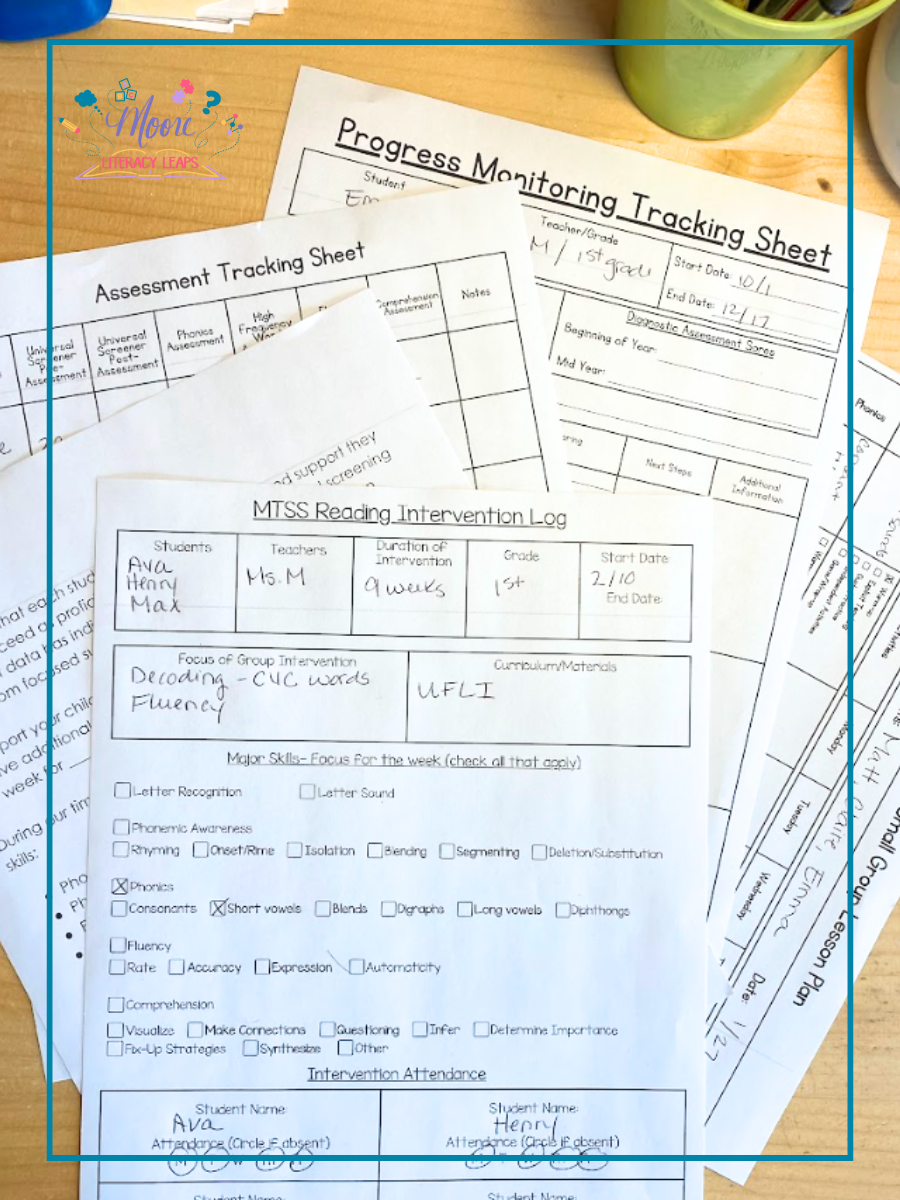 Moore
LITERACY LEAPS
Progress Monitoring Tracking Sheet
Student
Teacher/Grade
M / 1st grade
Start Date: 10/1
End Date: 12/17
Diagnostic Assessment Scores
Beginning of Year:
Mid Year:
Next Steps
Additional Information
Assessment Tracking Sheet
Universal Screener Pre-Assessment
Universal Screener Post-Assessment
Phonics Assessment
High Frequency
Comprehension Assessment
Notes
support they
screening
MTSS Reading Intervention Log
Students
Teachers
Duration of Intervention
Grade
Start Date:
Ava
Henry
Max
Ms. M
9 weeks
1st
2/10
End Date:
Focus of Group Intervention
Curriculum/Materials
Decoding - CVC words
Fluency
UFLI
Major Skills- Focus for the week (check all that apply)
Letter Recognition
Letter Sound
Phonemic Awareness
Rhyming Onset/Rime Isolation Blending Segmenting Deletion/Substitution
Phonics
Consonants Short vowels Blends Digraphs Long vowels Diphthongs
Fluency
Rate Accuracy Expression Automaticity
Comprehension
Visualize Make Connections Questioning Infer Determine Importance
Fix-Up Strategies Synthesize Other
Intervention Attendance
Student Name:
Ava
Attendance (Circle if absent)
Student Name:
Henry
Attendance (Circle if absent)
Student Name:
Student Name:
that each
data has
week for
During our
skills:
Phonics
Monday
Tuesday
Wednesday
Matt, Claire, Emma
Small Group Lesson Plan
Date: 1/27